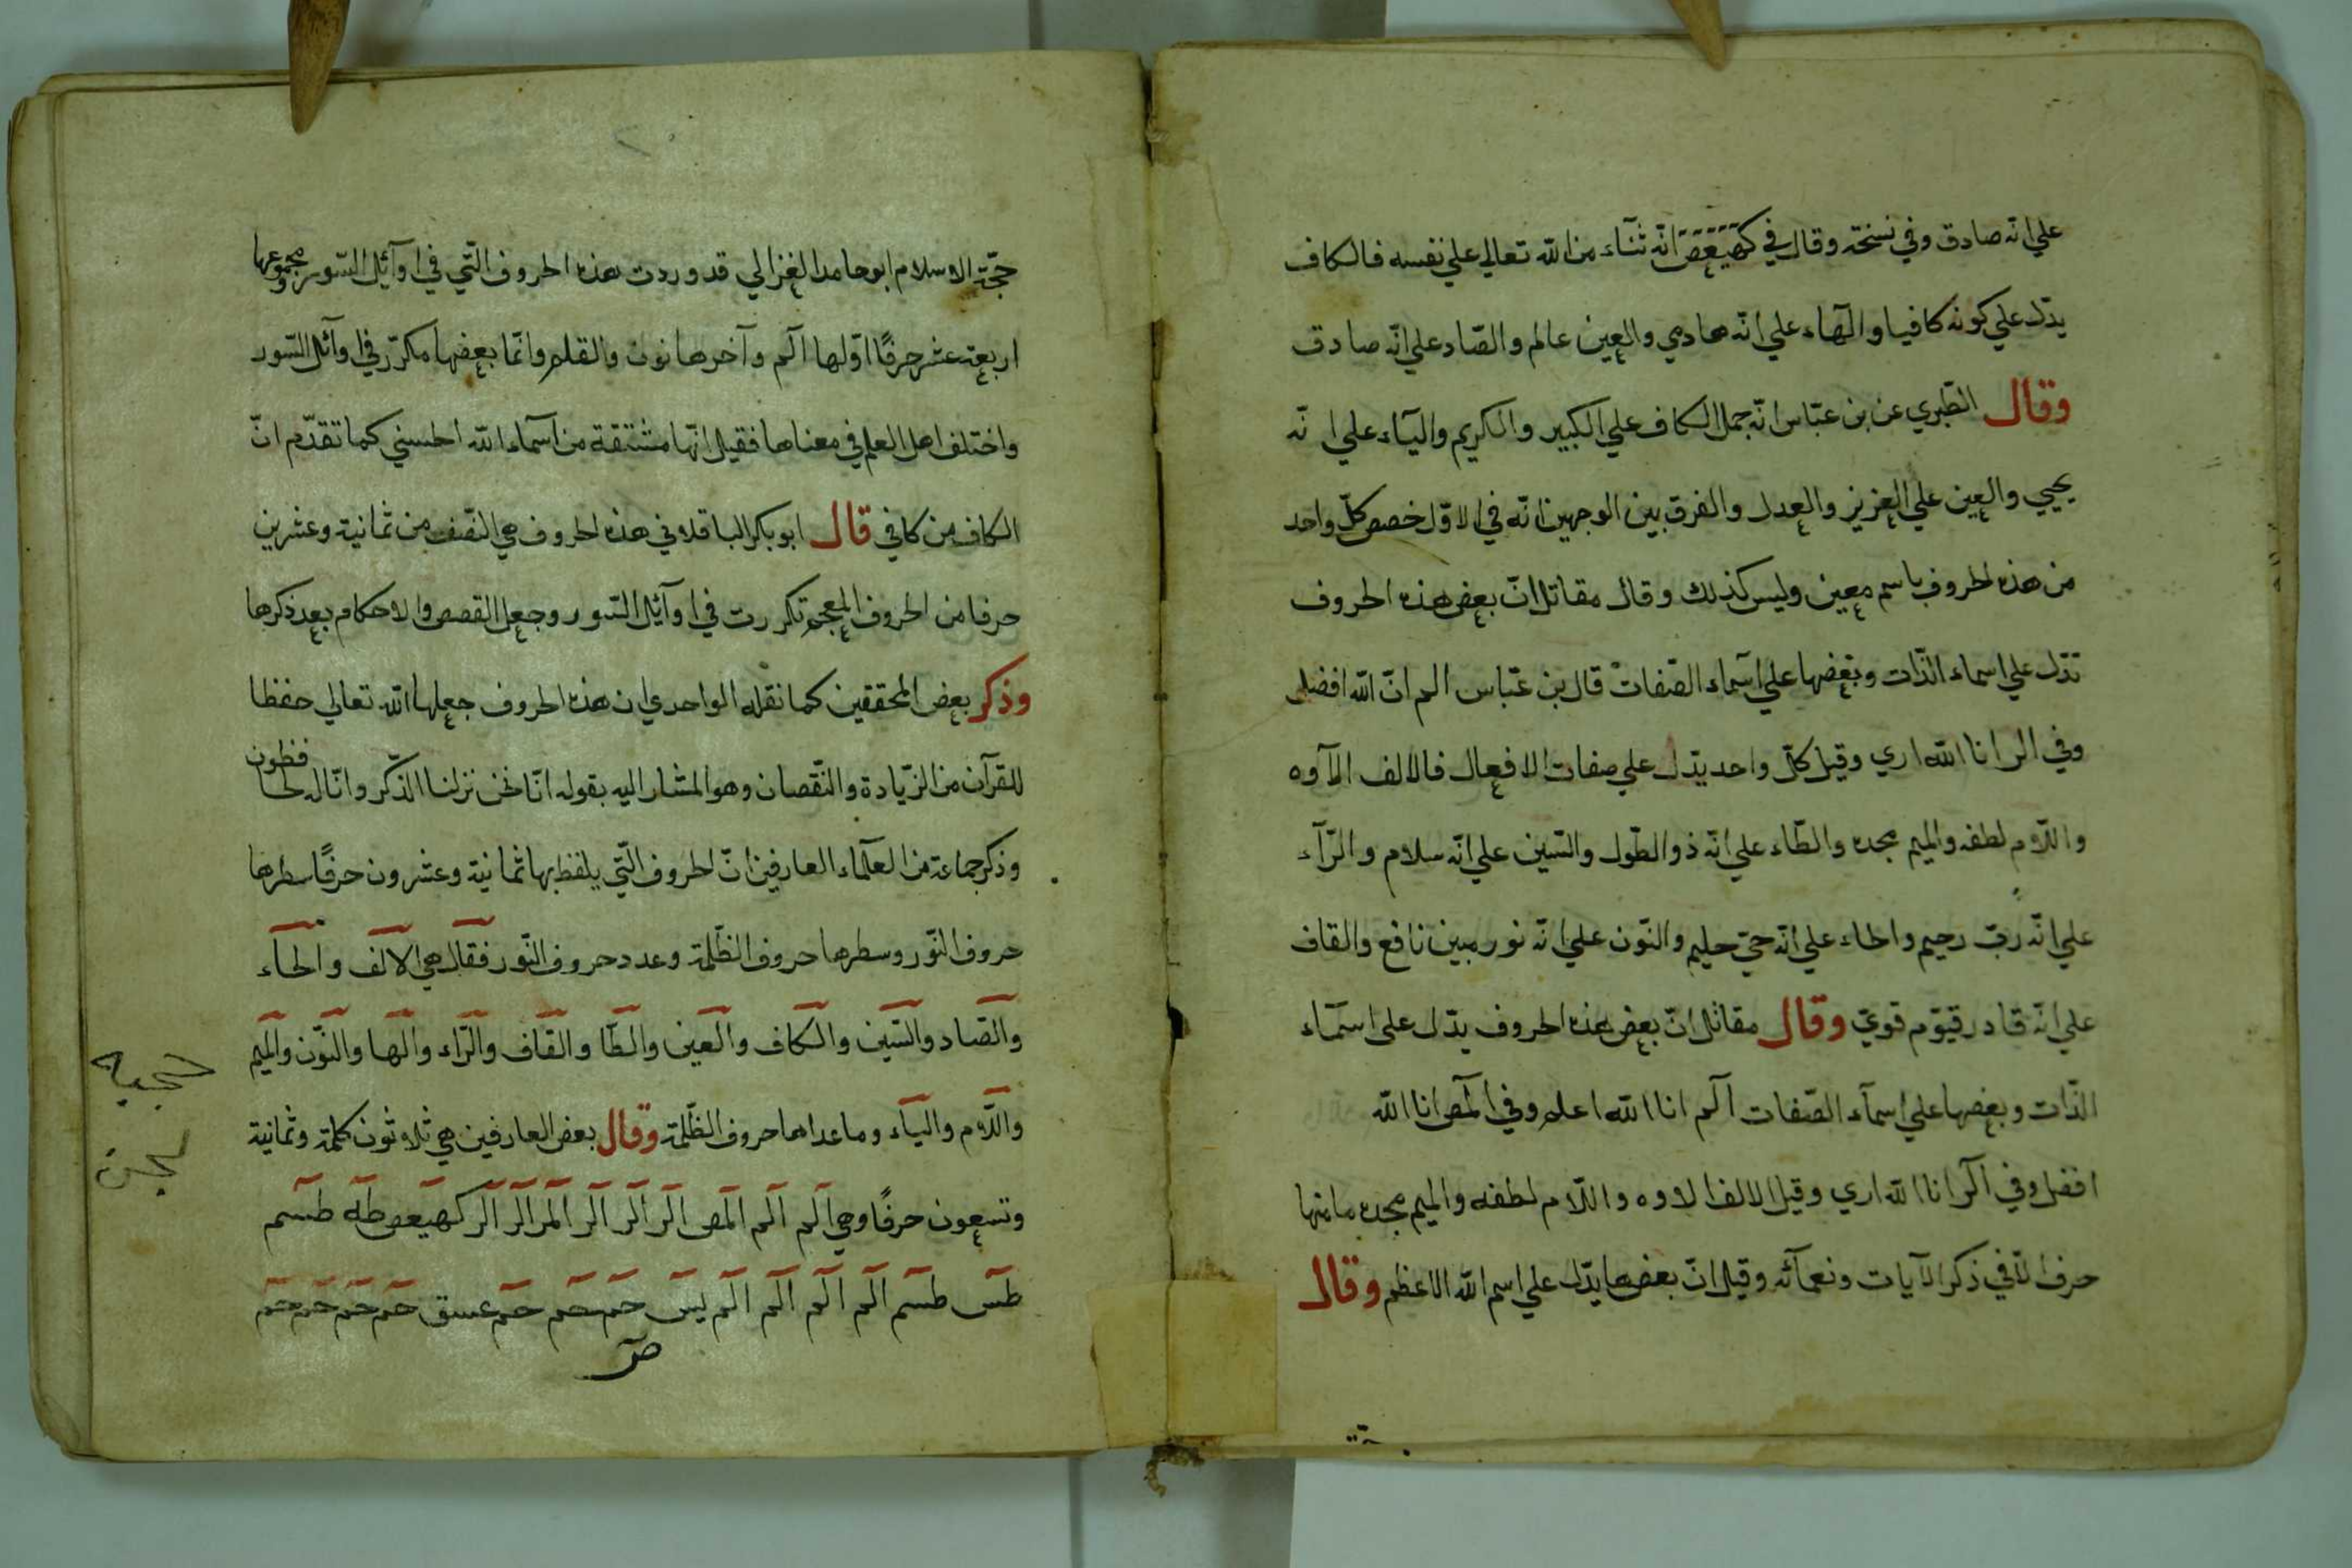 علي انه صادق وفي نسخة وقال في كهيعص انه ثناء من الله تعالي علي نفسه فالكاف
يدل علي كونه كافيا والهاء علي انه هادي والعين عالم والصاد علي انه صادق
وقال الطبري عن بن عباس انه حمل الكاف علي الكبير والكريم والياء علي انه
يحيي والعين علي العزيز والعدل والفرق بين الوجهين انه في الاول خصص كل واحد
من هذه الحروف باسم معين وليس كذلك وقال مقاتل ان بعض هذه الحروف
تدل علي اسماء الذات وبعضها علي اسماء الصفات قال بن عباس الم ان الله افضل
وفي الر انا الله اري وقيل كل واحد يدل علي صفات الافعال فالالف الآوه
واللام لطفه والميم مجده والطاء علي انه ذو الطول والسين علي انه سلام والرآء
علي انه رب رحيم والحاء علي انه حي حليم والنون علي انه نور مبين نافع والقاف
علي انه قادر قيوم قوي وقال مقاتل ان بعض هذه الحروف يدل علي اسماء
الذات وبعضها علي اسمآء الصفات الم انا الله اعلم وفي المص انا الله
افضل وفي الر انا الله اري وقيل الالف الاوه واللام لطفه والميم مجده ما منها
حرف الا في ذكر الآيات ونعمآئه وقيل ان بعضها يدل علي اسم الله الاعظم وقال
حجة الاسلام ابو حامد الغزالي قد وردت هذه الحروف التي في اوآئل السور مجموعها
اربعة عشر حرفا اولها الم وآخرها نون والقلم وانما بعضها مكرر في اوآئل السور
واختلف اهل العلم في معناها فقيل انها مشتقة من اسماء الله الحسني كما تقدم ان
الكاف من كافي قال ابو بكر الباقلاني هذه الحروف هي النصف من ثمانية وعشرين
حرفا من الحروف المعجم تكررت في اوآئل السور وجعل القصص والاحكام بعد ذكرها
وذكر بعض المحققين كما نقله الواحدي ان هذه الحروف جعلها الله تعالي حفظا
للقرآن من الزيادة والنقصان وهو المشار اليه بقوله انا نحن نزلنا الذكر وانا له لحافظون
وذكر جماعة من العلماء العارفين ان الحروف التي يلفظ بها ثمانية وعشرون حرفا سطرها
حروف النور وسطرها حروف الظلمة وعدد حروف النور فقال هي الالف والحاء
والصاد والسين والكاف والعين والطا والقاف والراء والها والنون والميم
واللام والياء وما عداها حروف الظلمة وقال بعض العارفين هي ثلاثون كلمة وثمانية
وتسعون حرفا وهي الم الم المص الر الر الر المر الر الر كهيعص طه طسم
طس طسم الم الم الم الم يس حم حم حم عسق حم حم حم حم
ص